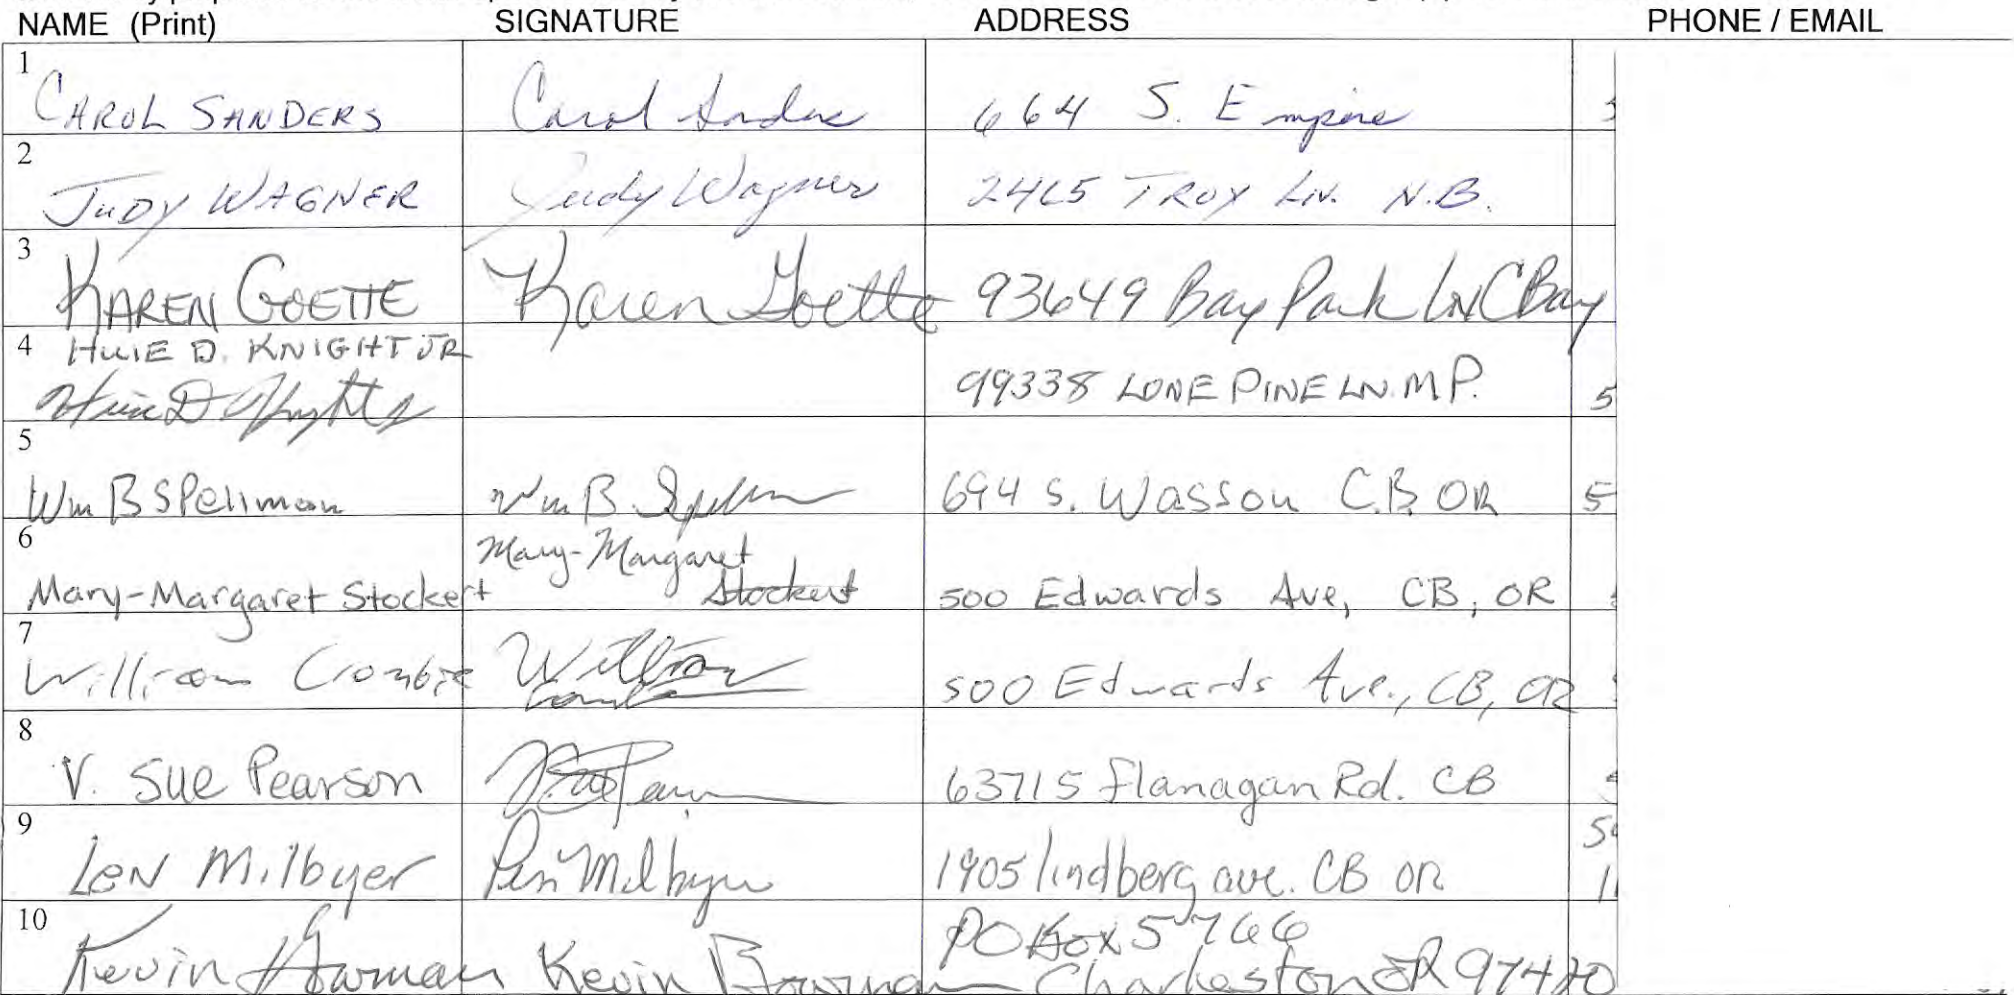 NAME (Print) SIGNATURE ADDRESS PHONE / EMAIL
1 CAROL SANDERS Carol Sanders 664 S. Empire
2 JUDY WAGNER Judy Wagner 2465 TROY LN. N.B.
3 KAREN GOETTE Karen Goette 93649 Bay Park LN CBay
4 HUIE D. KNIGHT JR
99338 LONE PINE LN. M P. 5
5 Wm B Spellman Wm B 694 S. Wasson C.B. OR 5
6 Mary-Margaret
Mary-Margaret Stockert Stockert 500 Edwards Ave, CB, OR
7 William Crombie William 500 Edwards Ave., CB, OR
8 V. Sue Pearson 63715 Flanagan Rd. CB
9 Len Milbyer Len Milbyer 1905 lindberg ave. CB OR
10 PO Box 5766
Kevin Kevin Bowman Charleston OR 97420